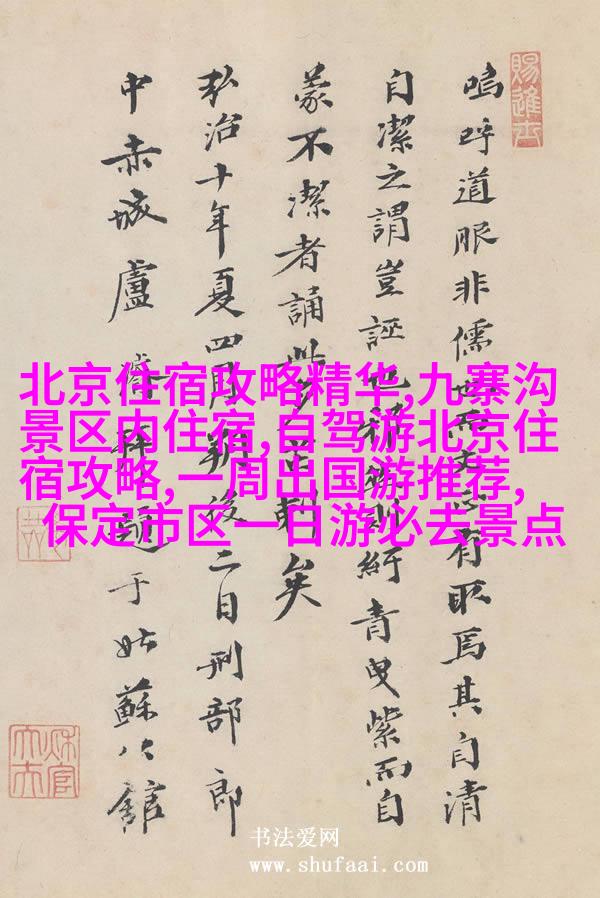 北京住宿攻略精华,九寨沟
景区内住宿,自驾游北京住
宿攻略,一周出国游推荐,
保定市区一日游必去景点
嗚呼道服非儒而有取焉其自清
自潔之謂豈誣也彼紆青曳紫而自
蒙不潔者誦此矣
弘治十年夏四月朔後二日刑部郎
中赤城盧濬拜題于姑蘇公館
賜進士
书法爱网
www.shufaai.com